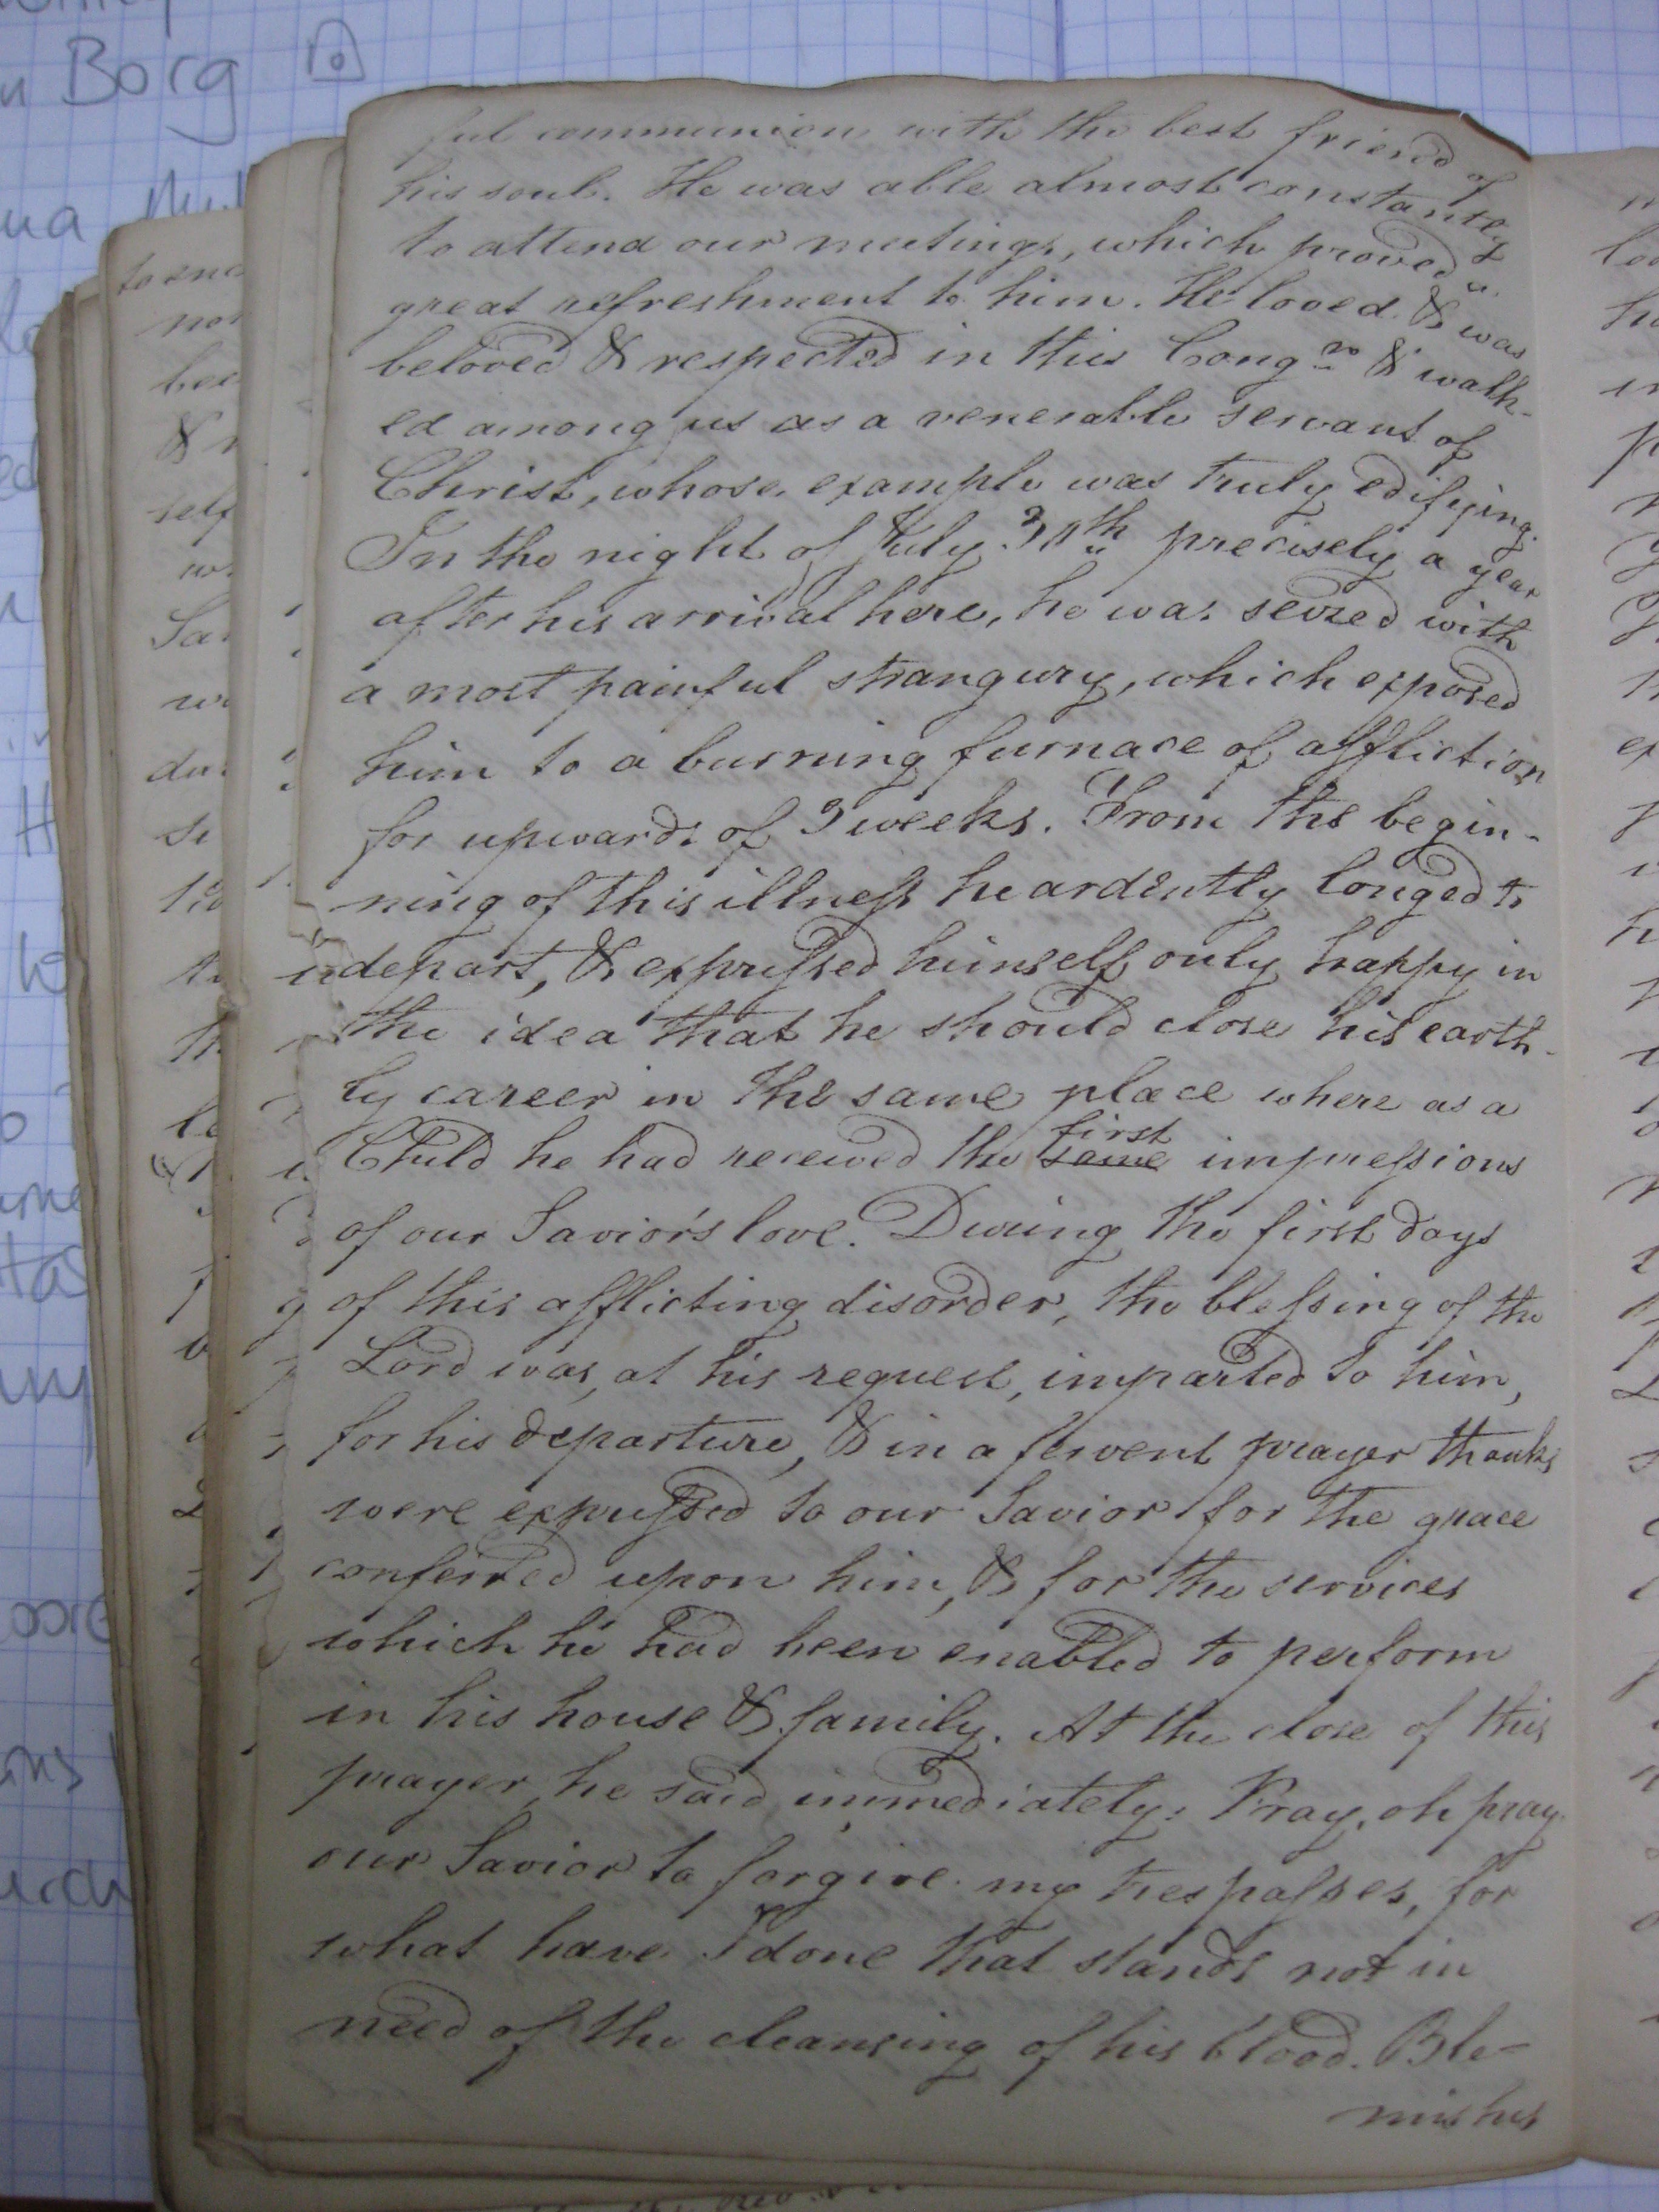 ful communion with the best friend of
his soul. He was able almost constantly
to attend our meetings, which proved a
great refreshment to him. He loved & was
beloved & respected in this Congn & walk-
ed among us as a venerable servant of
Christ, whose example was truly edifying.
In the night of July precisely a year
after his arrival here, he was seized with
a most painful strangury, which exposed
him to a burning furnace of affliction
for upwards of 3 weeks. From the begin-
ning of this illness he ardently longed to
depart, & expressed himself only happy in
the idea that he should close his earth-
ly career in the same place where as a
Child he had received the same first impressions
of our Savior's love. During the first days
of this afflicting disorder, the blessing of the
Lord was, at his request, imparted to him,
for his departure, & in a fervent prayer thanks
were expressed to our Savior for the grace
conferred upon him, & for the services
which he had been enabled to perform
in his house & family. At the close of this
prayer, he said immediately: Pray, oh pray
our Savior to forgive my trespasses, for
what have I done that stands not in
need of the cleansing of his blood. Ble-
mishes
Borg